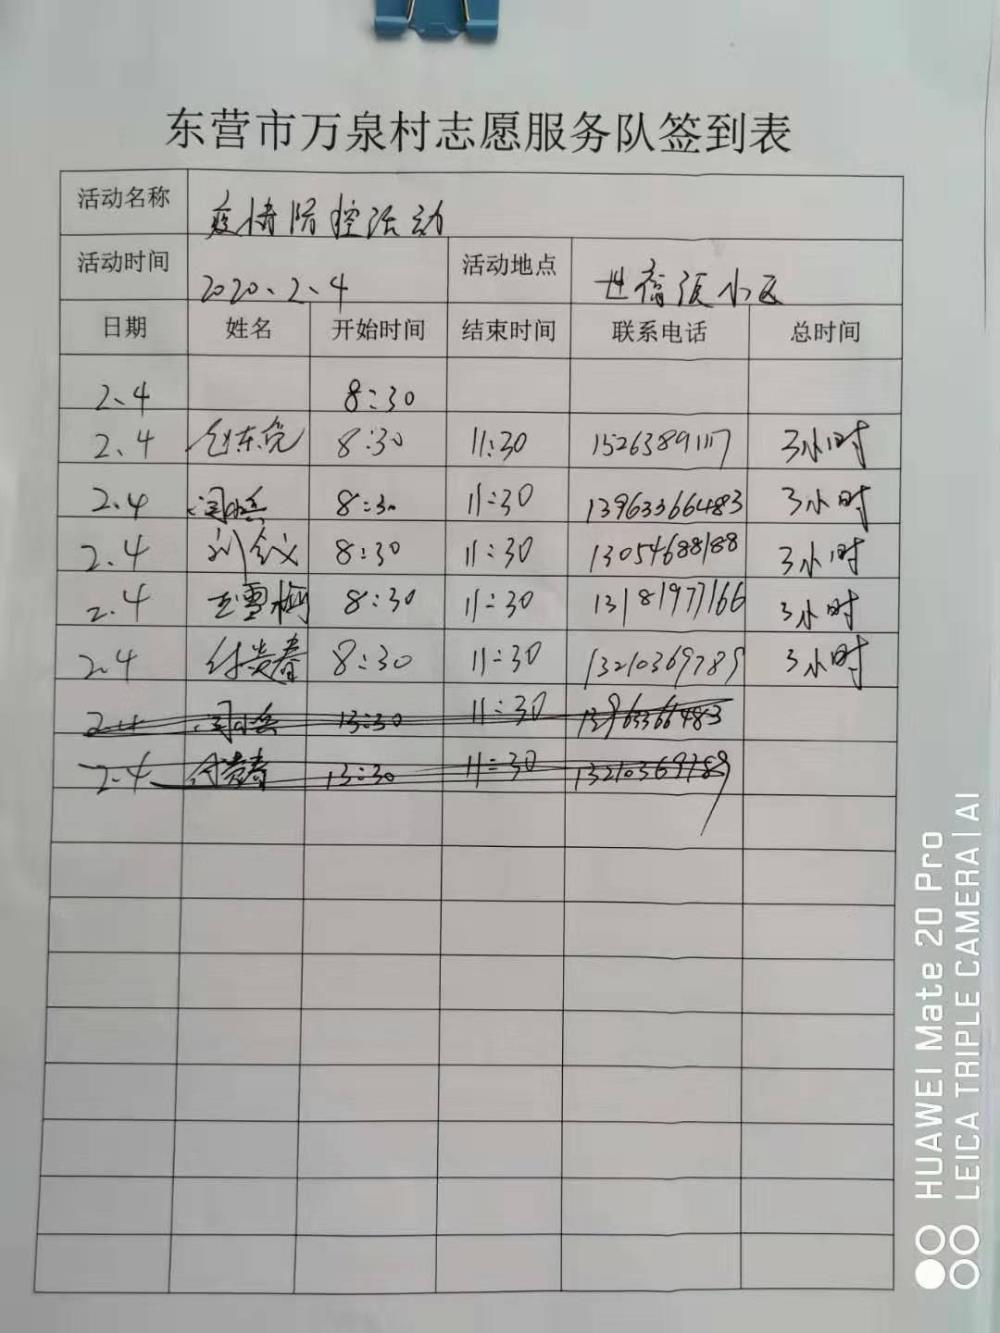 东营市万泉村志愿服务队签到表
活动名称 疫情防控活动
活动时间 2020.2.4 活动地点 世 小区
日期 姓名 开始时间 结束时间 联系电话 总时间
2.4 8:30
2.4 赵东亮 8:30 11:30 15263891117 3小时
2.4 闫小兵 8:30 11:30 13963366483 3小时
2.4 刘会义 8:30 11:30 13054688188 3小时
2.4 王雪梅 8:30 11:30 13181977166 3小时
2.4 付贵春 8:30 11:30 13210369789 3小时
2.4 闫小兵 13:30 11:30 13963366483
2.4 付贵春 13:30 11:30 13210369789
HUAWEI Mate 20 Pro
LEICA TRIPLE CAMERA | AI